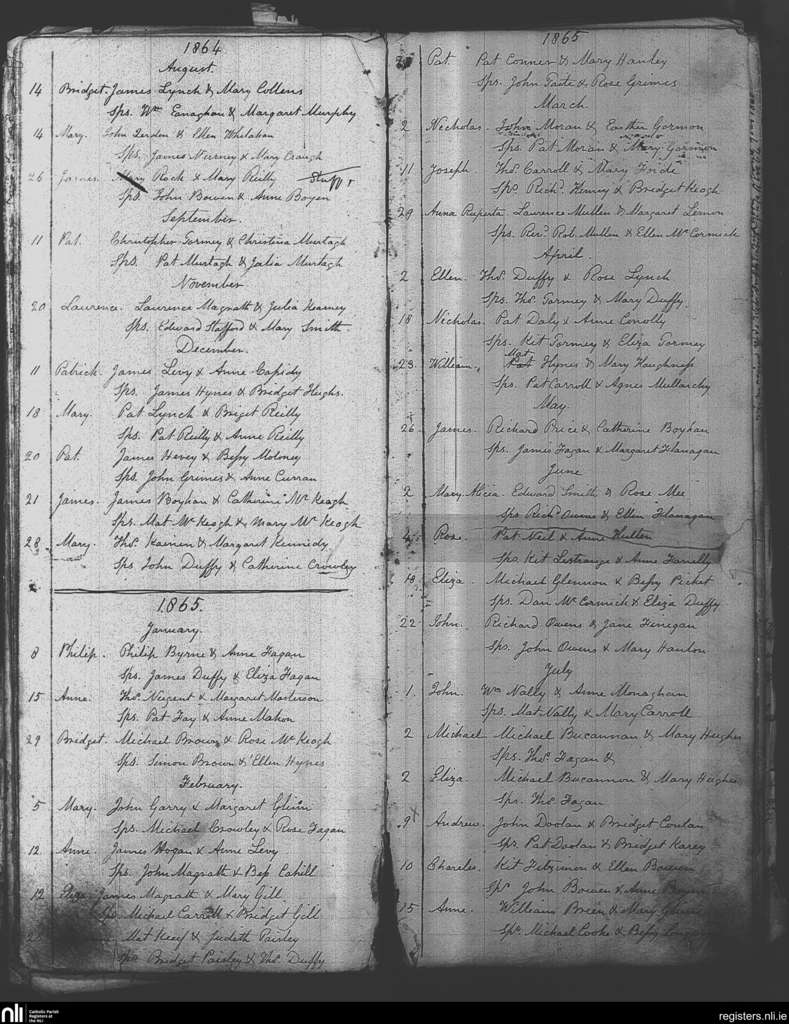 1864
August.
14 Bridget. James Lynch & Mary Collens
Sps. Wm Eanaghan & Margaret Murphy
14 Mary. John Derden & Ellen Whilahan
Sps. James Nurney & Mary Creagh
26 James. Mary Rock & Mary Reilly
Sps. John Bowen & Anne Boyen
September.
11 Pat. Christopher Tormey & Christina Murtagh
Sps. Pat Murtagh & Julia Murtagh
November
20 Laurence. Laurence Magrath & Julia Kearney
Sps. Edward Stafford & Mary Smith
December.
11 Patrick. James Levy & Anne Capidy
Sps. James Hynes & Bridget Heighs.
18 Mary. Pat Lynch & Briget Reilly
Sps. Pat Reilly & Anne Reilly
20 Pat. James Hevey & Bessy Moloney
Sps. John Grimes & Anne Curran
21 James. James Boyhan & Catherine Mc Keagh
Sps. Mat Mc Keogh & Mary Mc Keogh
28 Mary. Thos. Kainen & Margaret Kennedy
Sps. John Duffy & Catherine Crowley
1865.
January.
8 Philip. Philip Byrne & Anne Fagan
Sps. James Duffy & Eliza Fagan
15 Anne. Thos. Nugent & Margaret Masterson
Sps. Pat Fay & Anne Mahon
29 Bridget. Michael Brown & Rose Mc Keogh
Sps. Simon Brown & Ellen Hynes
February.
5 Mary. John Garry & Margaret Glinn
Sps. Michael Crowley & Rose Fagan
12 Anne. James Hogan & Anne Levy
Sps. John Magrath & Bess Cahill
12 Eliza James Magrath & Mary Gill
Sps. Michael Carroll & Bridget Gill
Mat Keef & Judith Paisley
Sps. Bridget Paisley & Thos. Duffy
1865
Pat. Pat Conner & Mary Hanley
Sps. John Taite & Rose Grimes
March
2 Nicholas. John Moran & Eonther Gormon
Sps. Pat Moran & Mary Gormon
11 Joseph. Thos. Carroll & Mary Fride
Sps. Richd. Henry & Bridget Keogh
29 Anna Ruperta. Laurence Mullen & Margaret Lemon
Sps. Revd. Rob. Mullen & Ellen Mc Cormick
April.
2 Ellen. Thos. Duffy & Rose Lynch
Sps. Thos. Tormey & Mary Duffy.
18 Nicholas. Pat Daly & Anne Conolly
Sps. Kit Tormey & Eliza Tormey
23. William. Pat Hynes & Mary Haughness
Sps. Pat Carroll & Agnes Mullarchy
May.
26 James. Richard Price & Catherine Boyhan
Sps. James Fagan & Margaret Flanagan
June
2 Mary Alicia. Edward Smith & Rose Mee
Sps. Richd. Owens & Ellen Flanagan
4 Rose. Pat Neil & Anne Hutten
Sps. Kit Lestrange & Anne Farrelly
18 Eliza. Michael Glennon & Bessy Picket
Sps. Dan Mc Cormick & Eliza Duffy
22 John. Richard Owens & Jane Finegan
Sps. John Owens & Mary Hanlon
July
1. John. Wm Nally & Anne Monaghan
Sps. Mat Nally & Mary Carroll
2 Michael Michael Bucannan & Mary Hughes
Sps. Thos. Fagan &
2 Eliza. Michael Bucannon & Mary Hughes
Sps. Thos. Fagan
9 Andrew. John Doolan & Bridget Conlan
Sps. Pat Doolan & Bridget Karey
10 Charles. Kit Fitzsimon & Ellen Bowen
Sps. John Bowen & Anne
15 Anne. William Breen & Mary
Sps. Michael Cooke & Bessy
nli Catholic Parish
Registers at
the NLI
registers.nli.ie